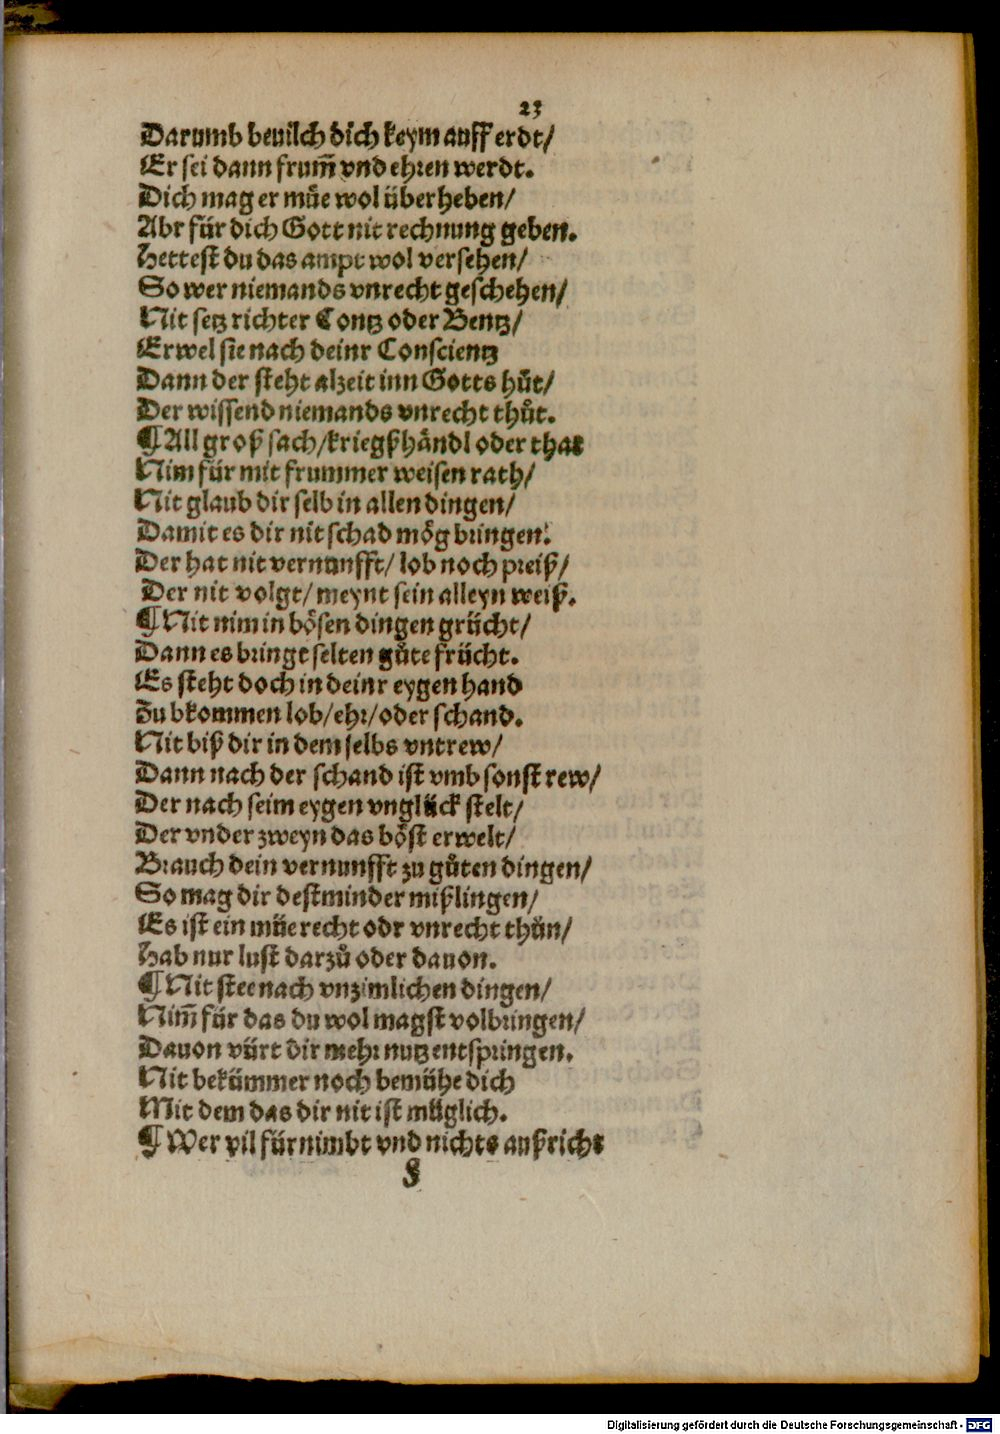 23
Darumb beuilch dich keym auff erdt/
Er sei dann frum̃ vnd ehren werdt.
Dich mag er müe wol überheben/
Abr für dich Gott nit rechnung geben.
Hettest du das ampt wol versehen/
So wer niemands vnrecht geschehen/
Nit setz richter Contz oder Bentz/
Erwel sie nach deinr Conscientz
Dann der steht alzeit inn Gotts hůt/
Der wissend niemands vnrecht thůt.
¶ All groß sach/kriegßhändl oder that
Nim für mit frummer weisen rath/
Nit glaub dir selb in allen dingen/
Damit es dir nit schad mög bringen.
Der hat nit vernunfft/ lob noch preiß/
Der nit volgt/ meynt sein alleyn weiß.
¶ Nit nim in bösen dingen grücht/
Dann es bringt selten gůte frücht.
Es steht doch in deinr eygen hand
Zu bkommen lob/ehr/oder schand.
Nit biß dir in dem selbs vntrew/
Dann nach der schand ist vmb sonst rew/
Der nach seim eygen vnglück stelt/
Der vnder zweyn das böst erwelt/
Brauch dein vernunfft zu gůten dingen/
So mag dir destminder mißlingen/
Es ist ein müe recht odr vnrecht thůn/
Hab nur lust darzů oder dauon.
¶ Nit stee nach vnzimlichen dingen/
Nim̃ für das du wol magst volbringen/
Dauon vürt dir mehr nutz entspringen.
Nit bekümmer noch bemühe dich
Mit dem das dir nit ist müglich.
¶ Wer vil fürnimbt vnd nichts außricht
§
Digitalisierung gefördert durch die Deutsche Forschungsgemeinschaft - DFG